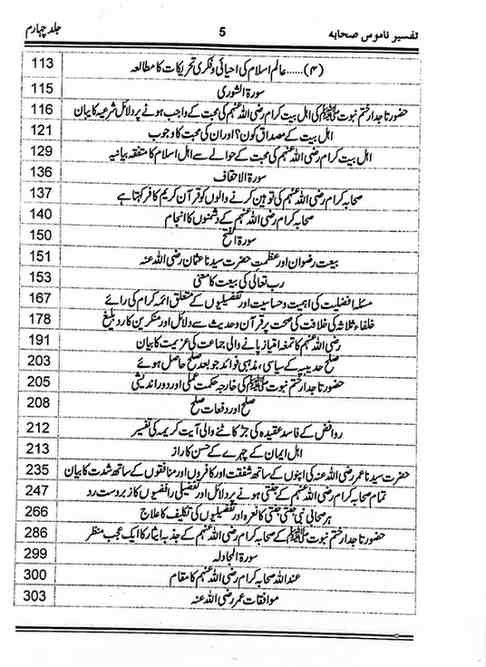 تفسیر ناموس صحابہ 5 جلد چہارم
(۴)......عالم اسلام کی احیائی وفکری تحریکات کا مطالعہ 113
سورۃ الشوری 115
حضور تاجدار ختم نبوت ﷺ کی اہل بیت کرام رضی اللہ عنہم کی محبت کے واجب ہونے پر دلائل شرعیہ کا بیان 116
اہل بیت کے مصداق کون؟ اور ان کی محبت کا وجوب 121
اہل بیت کرام رضی اللہ عنہم کی محبت کے حوالے سے اہل اسلام کا متفقہ بیانیہ 129
سورۃ الاحقاف 136
صحابہ کرام رضی اللہ عنہم کی توہین کرنے والوں کو قرآن کریم کا فر کہتا ہے 137
صحابہ کرام رضی اللہ عنہم کے دشمنوں کا انجام 140
سورۃ الفتح 150
بیعت رضوان اور عظمت حضرت سیدنا عثمان رضی اللہ عنہ 151
رب تعالی کی بیعت کا معنی 153
مسئلہ افضلیت کی اہمیت و حساسیت اور تفضیلیوں کے متعلق ائمہ کرام کی رائے 167
خلفاء ثلاثہ کی خلافت کی صحت پر قرآن وحدیث سے دلائل اور منکرین کا رد بلیغ 178
رضی اللہ عنہم کا تمغہ امتیاز پانے والی جماعت کی عزیمت کا بیان 191
صلح حدیبیہ کے سیاسی، مذہبی فوائد جو بعد صلح حاصل ہوئے 203
حضور تاجدار ختم نبوت ﷺ کی خارجہ حکمت عملی اور دور اندیشی 205
صلح اور دفعات صلح 208
روافض کے فاسد عقیدہ کی جڑ کاٹنے والی آیت کریمہ کی تفسیر 212
اہل ایمان کے چہرے کے حسن کا راز 213
حضرت سیدنا عمر رضی اللہ عنہ کی اپنوں کے ساتھ شفقت اور کافروں اور منافقوں کے ساتھ شدت کا بیان 235
تمام صحابہ کرام رضی اللہ عنہم کے جنتی ہونے پر دلائل اور تفضیلی رافضیوں کا زبردست رد 247
ہر صحابی نبی جنتی جنتی کا نعرہ اور تفضیلیوں کی تکلیف کا علاج 266
حضور تاجدار ختم نبوت ﷺ کے صحابہ کرام رضی اللہ عنہم کے جذبہ ایثار کا ایک عجب منظر 286
سورۃ المجادلہ 299
عند اللہ صحابہ کرام رضی اللہ عنہم کا مقام 300
موافقات عمر رضی اللہ عنہ 303